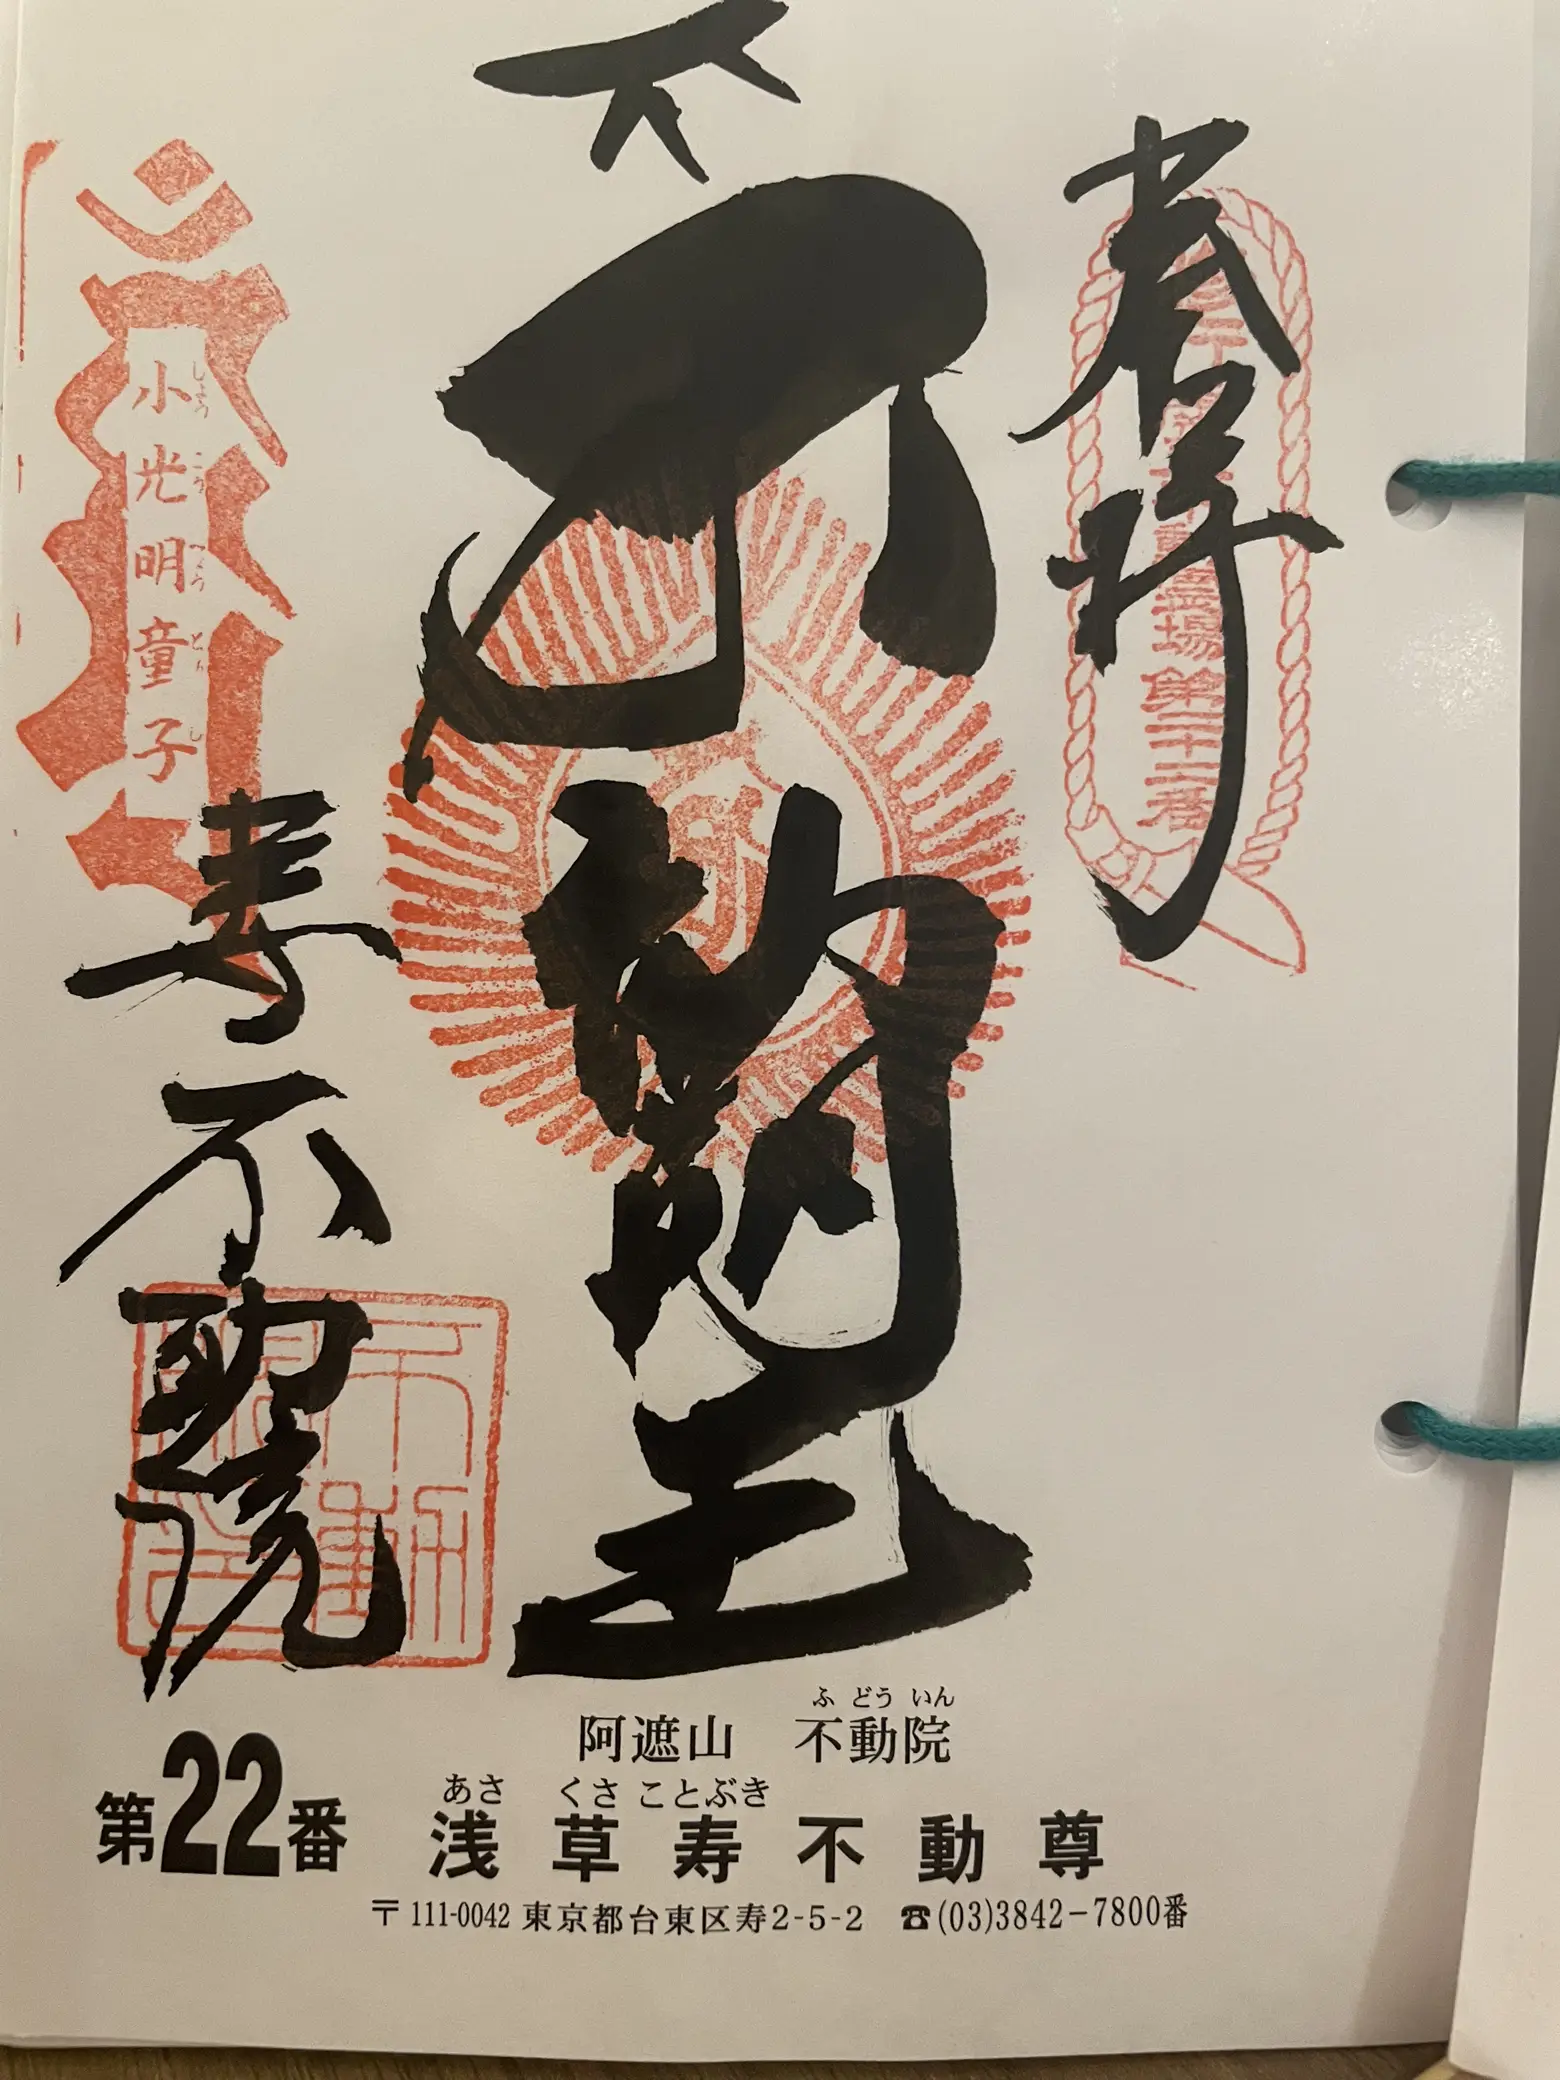 奉拝
霊場第二十二番
大
不動
王
小光明童子
寿不動院
阿遮山　不動院
ふ どう いん
あさ くさ ことぶき
第22番 浅草寿不動尊
〒111-0042 東京都台東区寿2-5-2 ☎(03)3842−7800番